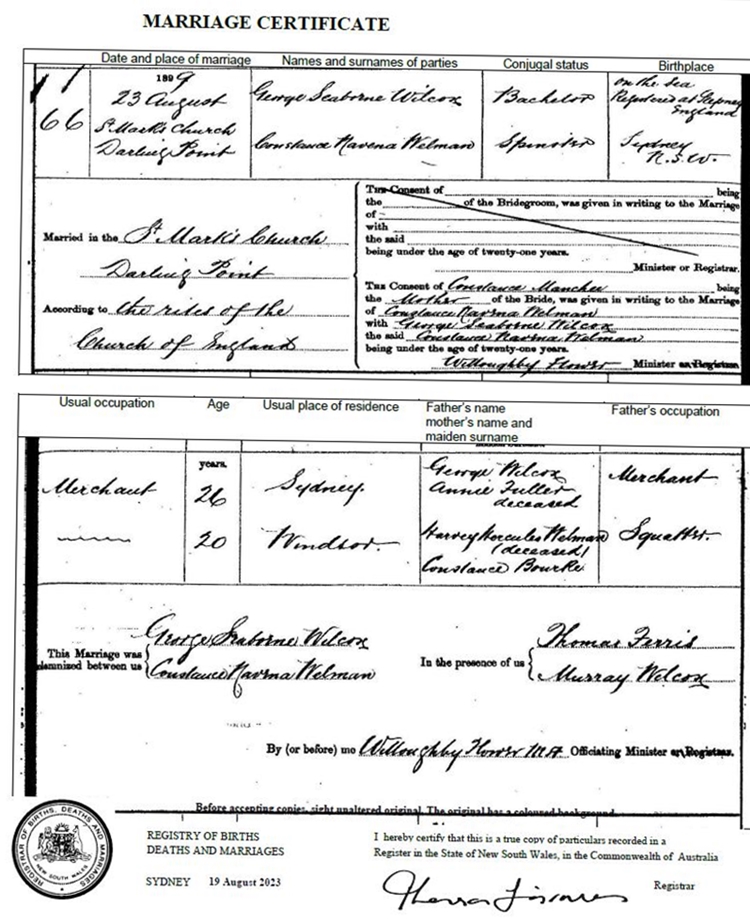 MARRIAGE CERTIFICATE
Date and place of marriage Names and surnames of parties Conjugal status Birthplace
1899
23 August George Seaborne Wilcox Bachelor on the Sea
Registered at Stepney
England
66 St. Mark's Church
Darling Point Constance Navena Welman Spinster Sydney
N.S.W.
Married in the St Mark's Church
Darling Point
According to the rites of the
Church of England
THE Consent of being
the of the Bridegroom, was given in writing to the Marriage
of
with
the said
being under the age of twenty-one years.
Minister or Registrar.
THE Consent of Constance Manchee being
the Mother of the Bride, was given in writing to the Marriage
of Constance Welman
with George Seaborne Wilcox
the said Constance Welman
being under the age of twenty-one years.
Willoughby Flower Minister or Registrar.
Usual occupation Age Usual place of residence Father's name Father's occupation
mother's name and
maiden surname
years.
Merchant 26 Sydney. George Wilcox Merchant
Annie Fuller
deceased
20 Windsor. Harvey Hercules Welman Squatter.
(deceased)
Constance Bourke
This Marriage was
solemnized between us
George Seaborne Wilcox
Constance Welman
In the presence of us
Thomas Ferris
Murray Wilcox
By (or before) me Willoughby Flower M.A. Officiating Minister or Registrar.
Before accepting copies, sight unaltered original. The original has a coloured background.
REGISTRAR OF BIRTHS, DEATHS AND MARRIAGES
NEW SOUTH WALES
REGISTRY OF BIRTHS
DEATHS AND MARRIAGES
SYDNEY 19 August 2023
I hereby certify that this is a true copy of particulars recorded in a
Register in the State of New South Wales, in the Commonwealth of Australia
Registrar